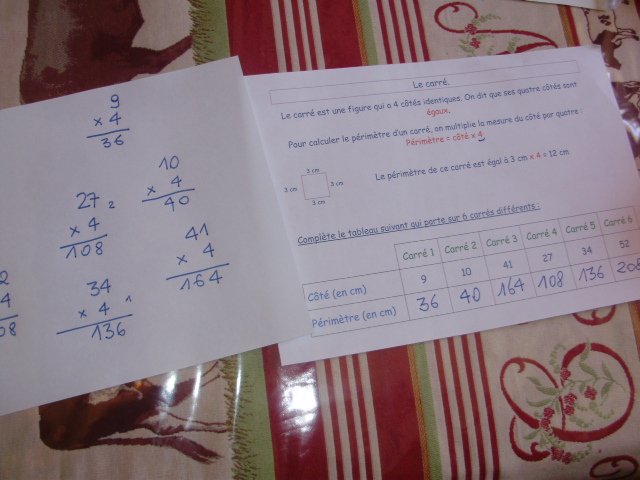 9
x 4
36
10
x 4
40
27 2
x 4
108
41
x 4
164
2
4
08
34
x 4 1
136
Le carré.
Le carré est une figure qui a 4 côtés identiques. On dit que ses quatre côtés sont
égaux.
Pour calculer le périmètre d'un carré, on multiplie la mesure du côté par quatre :
Périmètre = côté x 4
3 cm
3 cm 3 cm
3 cm
Le périmètre de ce carré est égal à 3 cm x 4 = 12 cm
Complète le tableau suivant qui porte sur 6 carrés différents :
Carré 1 Carré 2 Carré 3 Carré 4 Carré 5 Carré 6
Côté (en cm) 9 10 41 27 34 52
Périmètre (en cm) 36 40 164 108 136 208